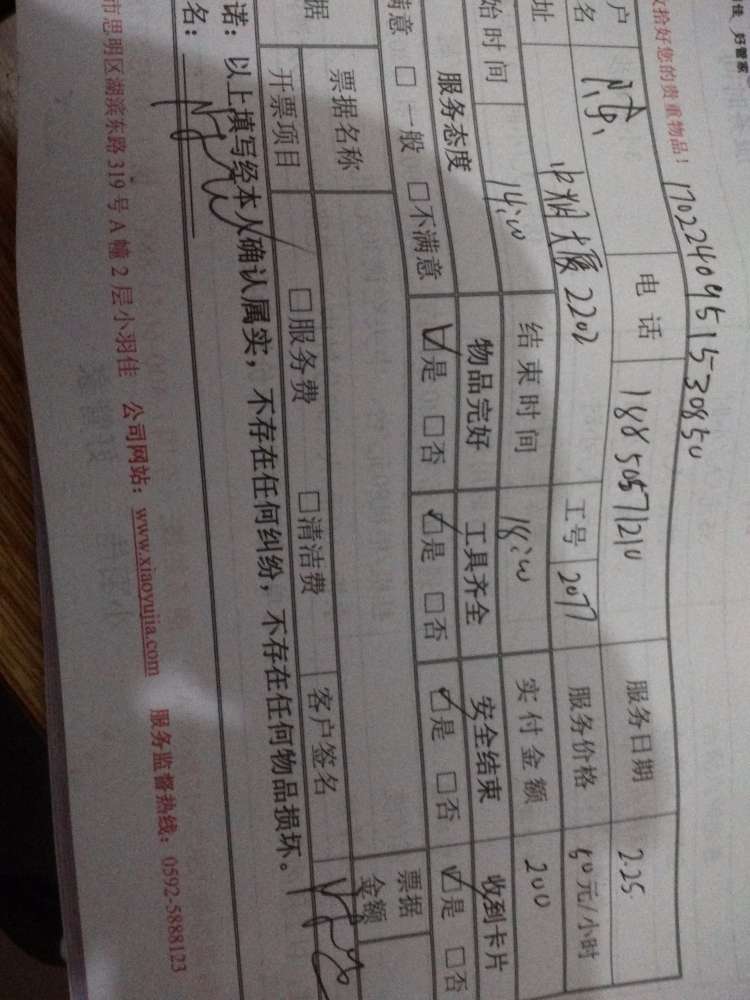 佳 好管家
收拾好您的贵重物品！ 1702240951530850
户名 陈 电话 18850571210 服务日期 2.25
址 大厦2202 工号 2077 服务价格 50元/小时
始时间 14:00 结束时间 18:00 实付金额 200
服务态度 物品完好 工具齐全 安全结束 收到卡片
满意 □一般 □不满意 ☑是 □否 ☑是 □否 ☑是 □否 ☑是 □否
据 票据名称 票据金额
开票项目 □服务费 □清洁费 客户签名
诺：以上填写经本人确认属实，不存在任何纠纷，不存在任何物品损坏。
名：
市思明区湖滨东路319号A幢2层小羽佳 公司网站：www.xiaoyujia.com 服务监督热线：0592-5888123